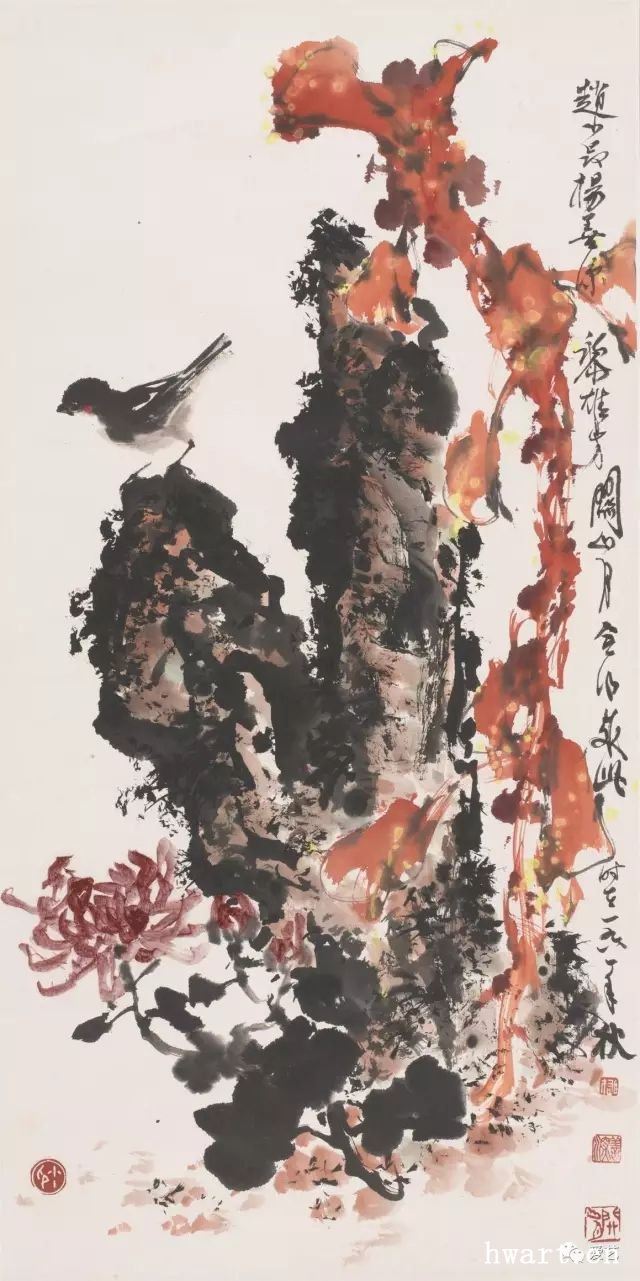 趙少昂楊善深
黎雄才
關山月合作於此
時在一九八一年秋
hwart.cn